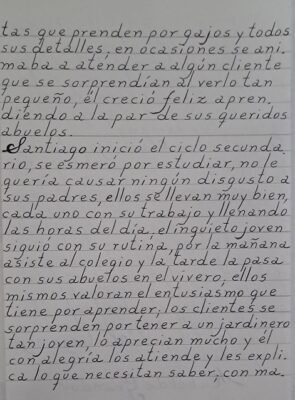 tas que prenden por gajos y todos
sus detalles, en ocasiones se ani.
maba a atender a algún cliente
que se sorprendían al verlo tan
pequeño, él creció feliz apren.
diendo a la par de sus queridos
abuelos.
Santiago inició el ciclo secunda.
rio, se esmeró por estudiar, no le
quería causar ningún disgusto a
sus padres, ellos se llevan muy bien,
cada uno con su trabajo y llenando
las horas del día, el inquieto joven
siguió con su rutina, por la mañana
asiste al colegio y la tarde la pasa
con sus abuelos en el vivero, ellos
mismos valoran el entusiasmo que
tiene por aprender; los clientes se
sorprenden por tener a un jardinero
tan joven, lo aprecian mucho y él
con alegría los atiende y les expli.
ca lo que necesitan saber; con ma.